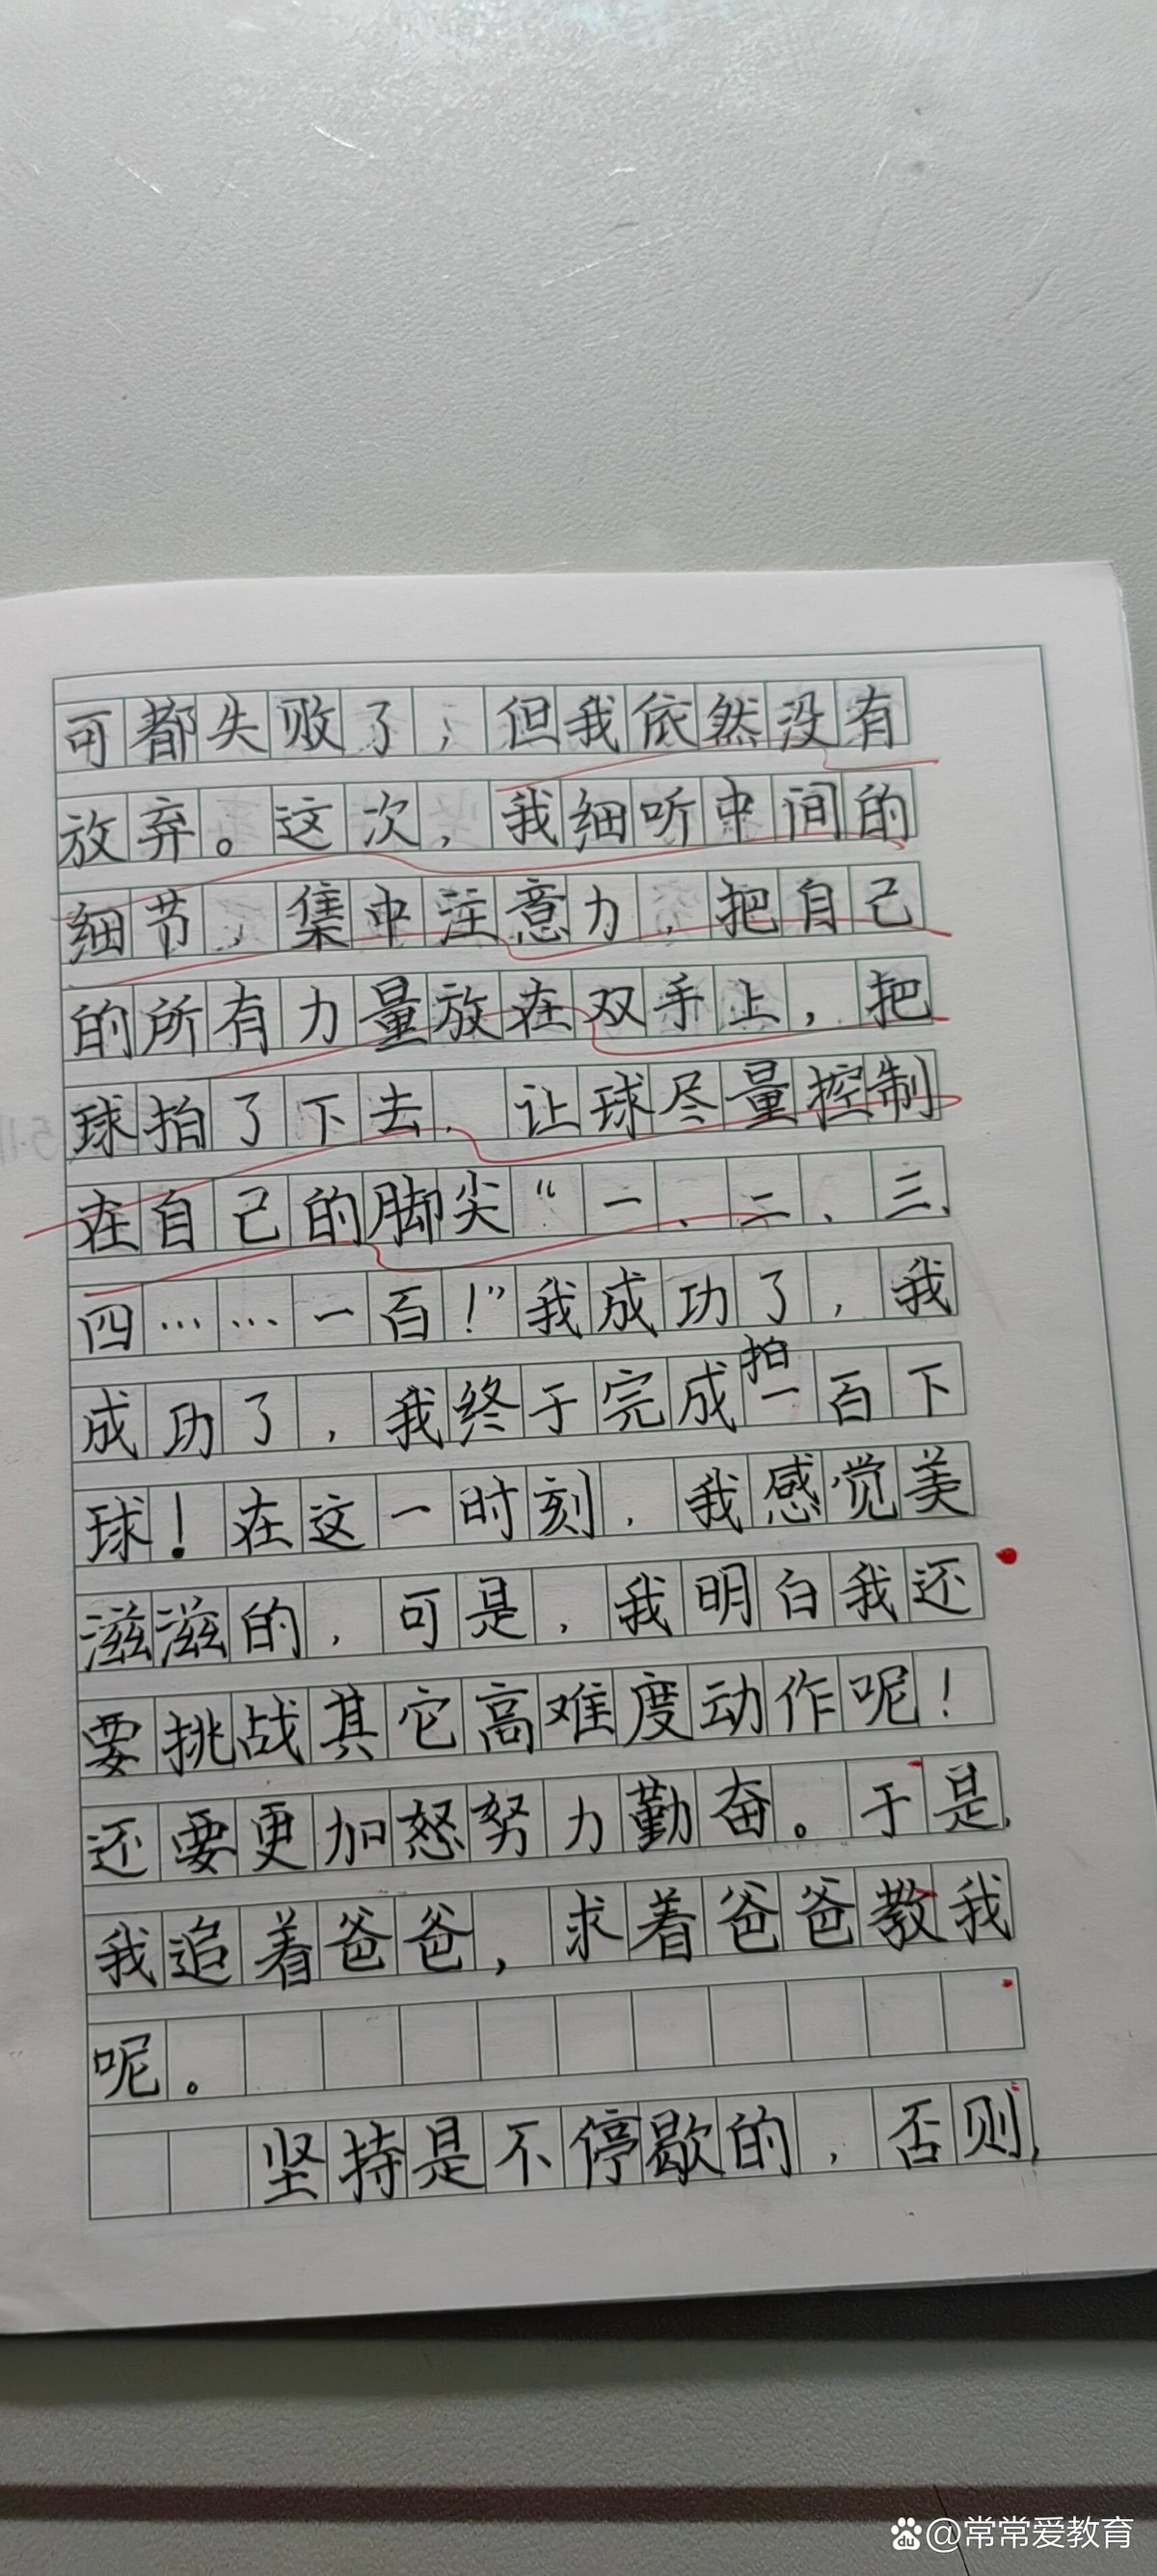 可都失败了，但我依然没有
放弃。这次，我细听中间的
细节，集中注意力，把自己
的所有力量放在双手上，把
球拍了下去，让球尽量控制
在自己的脚尖“一、二、三、
四……一百！”我成功了，我
成功了，我终于完成拍一百下
球！在这一时刻，我感觉美
滋滋的，可是，我明白我还
要挑战其它高难度动作呢！
还要更加怒努力勤奋。于是，
我追着爸爸，求着爸爸教我
呢。
坚持是不停歇的，否则，
du @常常爱教育